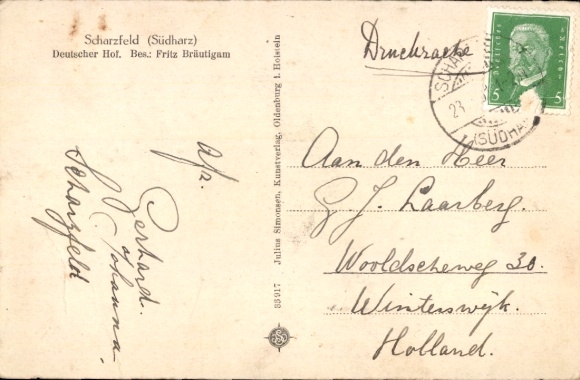 Scharzfeld (Südharz)
Deutscher Hof. Bes.: Fritz Bräutigam
Drucksache
Deutsches Reich
5 5
SÜDHA
23
Afz.
Gerhard.
Johanna.
Scharzfeld
33917 Julius Simonsen, Kunstverlag, Oldenburg i. Holstein
Aan den Heer
G. J. Laarberg.
Wooldscheweg 30.
Winterswijk.
Holland.